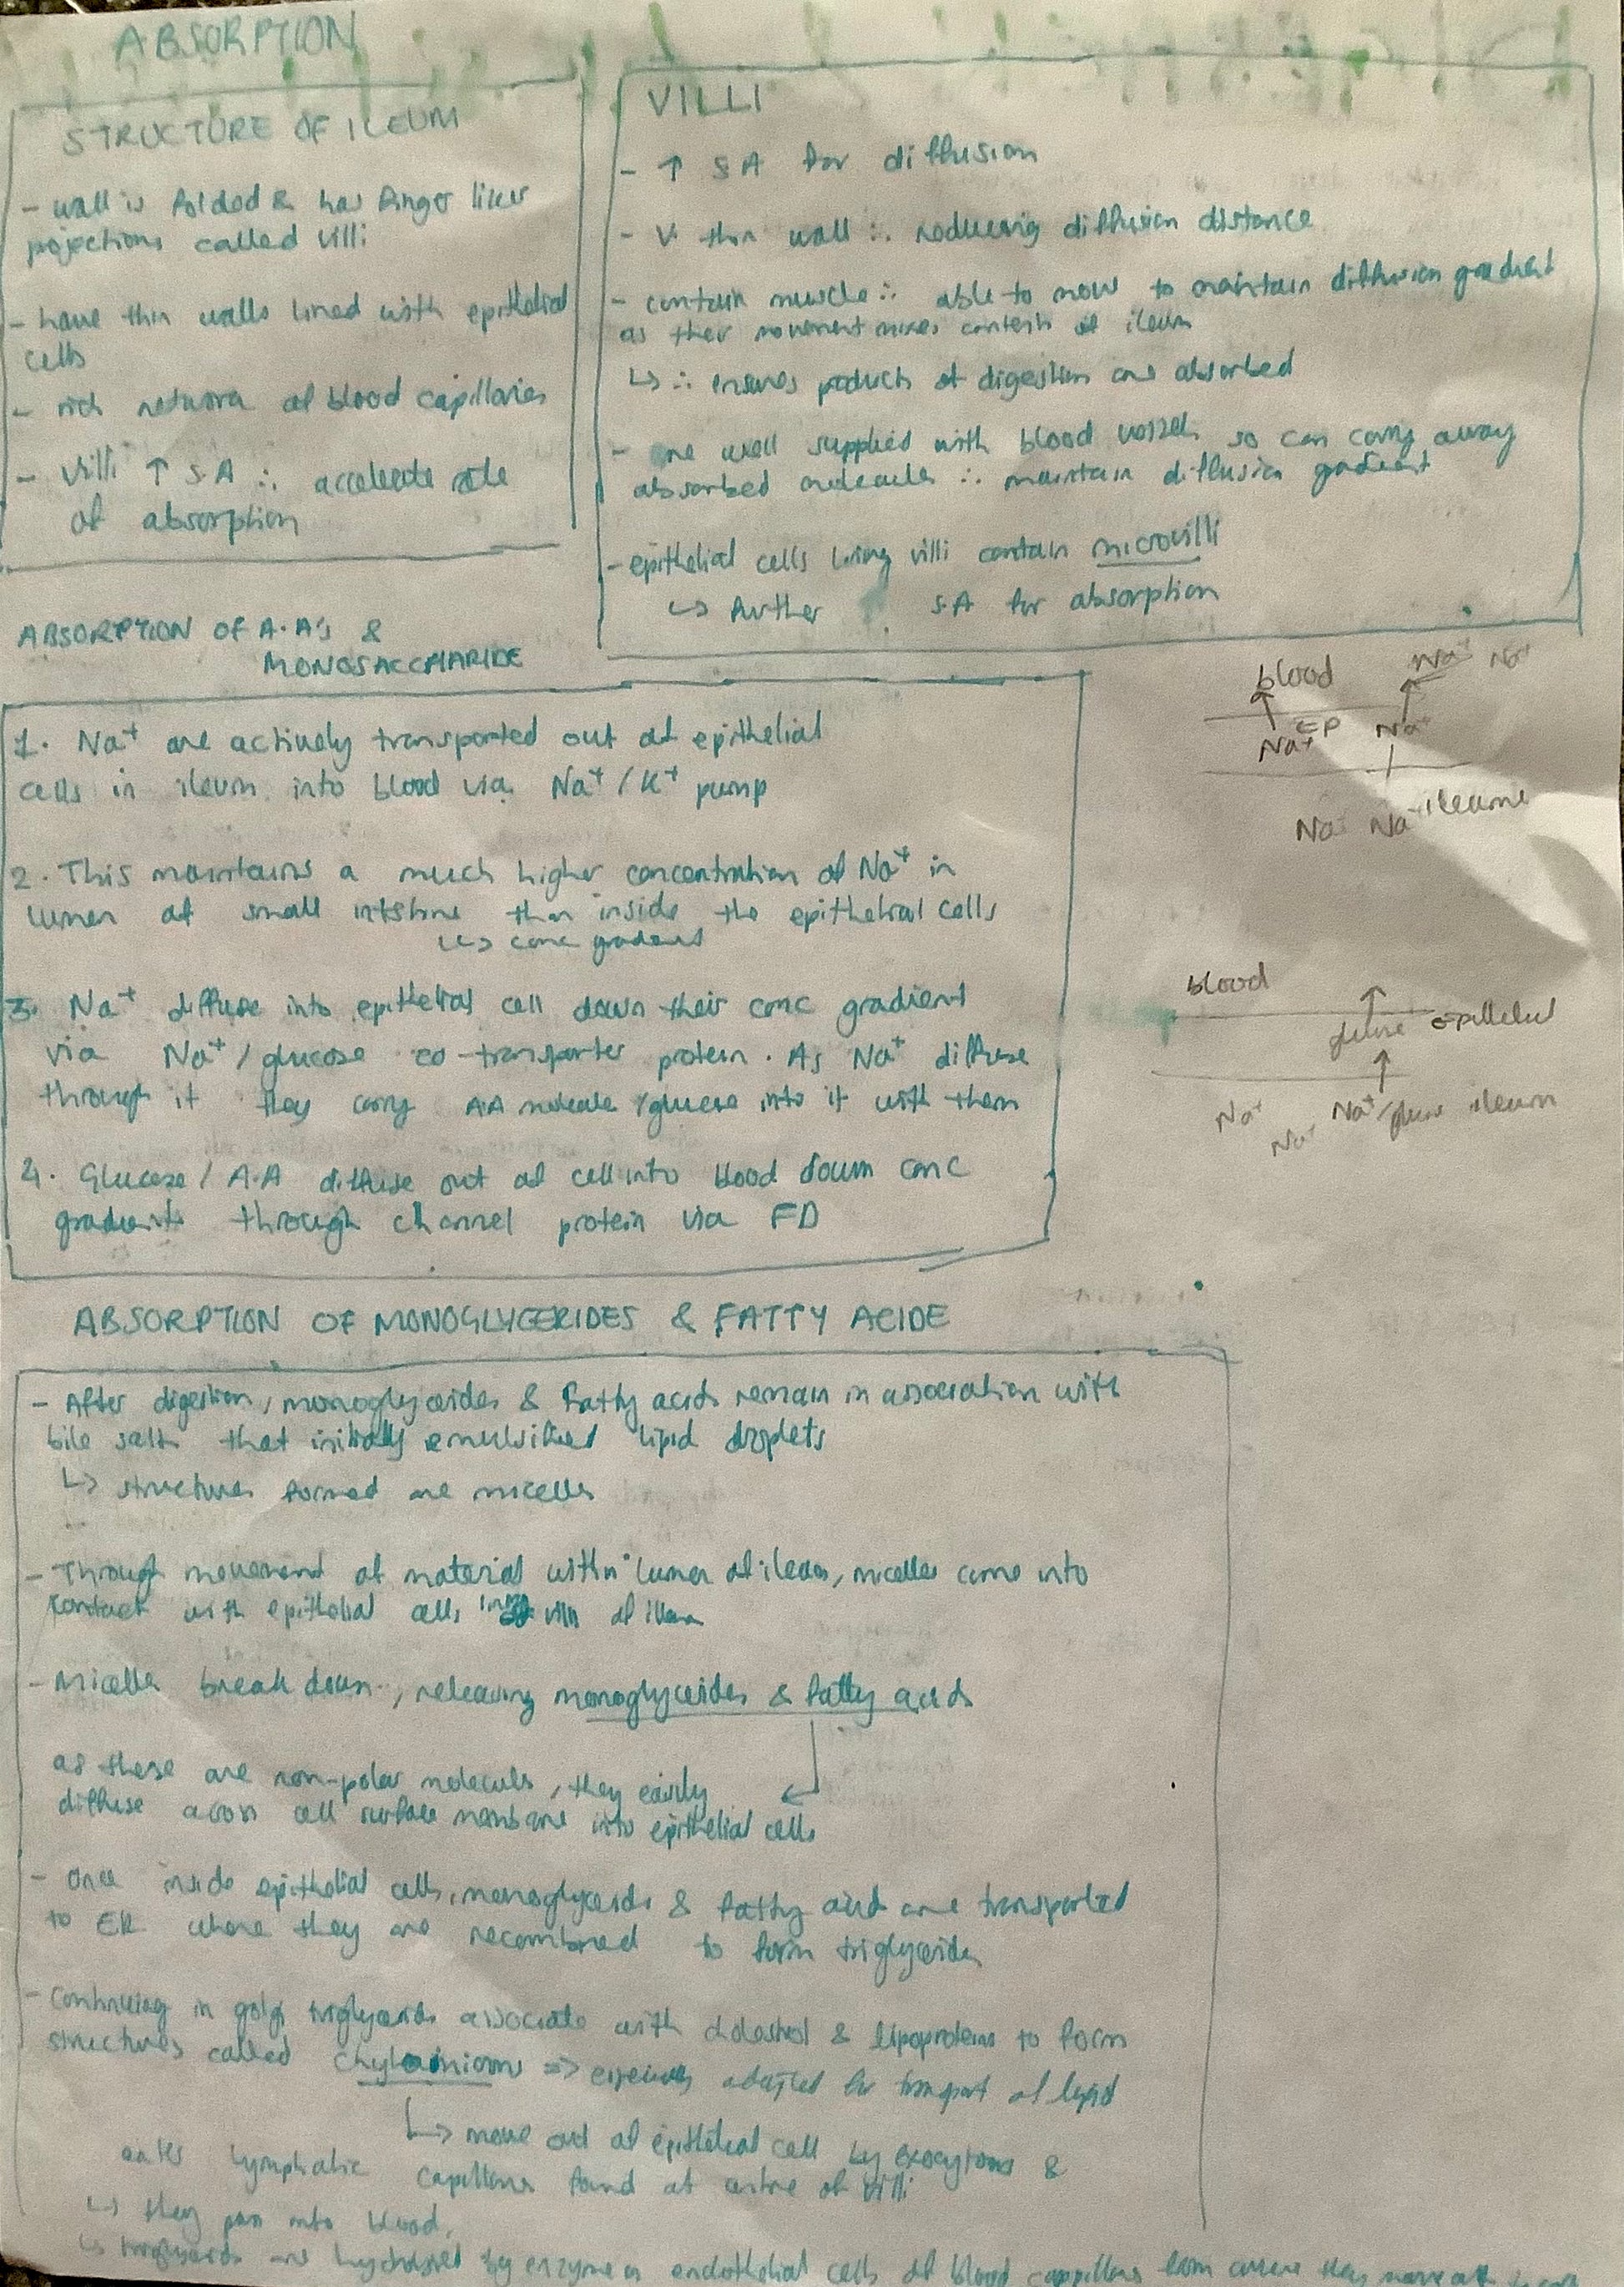 ABSORPTION
STRUCTURE OF ILEUM
- wall is folded & has finger like
projections called villi
- have thin walls lined with epithelial
cells
- rich network of blood capillaries
- Villi ↑ S.A ∴ accelerate rate
of absorption
VILLI
- ↑ SA for diffusion
- V. thin wall ∴ reducing diffusion distance
- contain muscle ∴ able to move to maintain diffusion gradient
as their movement mixes contents of ileum
↳ ∴ ensures products of digestion are absorbed
- are well supplied with blood vessels so can carry away
absorbed molecules ∴ maintain diffusion gradient
- epithelial cells lining villi contain microvilli
↳ further S.A for absorption
ABSORPTION OF A.A's &
MONOSACCHARIDE
1. Na⁺ are actively transported out of epithelial
cells in ileum into blood via Na⁺/K⁺ pump
2. This maintains a much higher concentration of Na⁺ in
lumen of small intstine than inside the epithelial cells
↳ conc gradient
3. Na⁺ diffuse into epithelial cell down their conc gradient
via Na⁺/glucose co-transporter protein. As Na⁺ diffuse
through it they carry AA molecule/glucose into it with them
4. Glucose/A.A diffuse out of cell into blood down conc
gradient through channel protein via FD
blood Na⁺ Na⁺
EP
Na⁺ Na⁺
ileum
Na⁺ Na⁺
blood
epithelial
Na⁺ Na⁺ Na⁺/ ileum
ABSORPTION OF MONOGLYCERIDES & FATTY ACIDE
- After digestion, monoglycerides & fatty acids remain in association with
bile salts that initially emulsified lipid droplets
↳ structures formed are micelles
- Through movement of material within lumen of ileum, micelles come into
contact with epithelial cells lining villi of ileum
- Micelles break down, releasing monoglycerides & fatty acids
as these are non-polar molecules, they easily
diffuse across cell surface membrane into epithelial cells
- Once inside epithelial cells, monoglycerides & fatty acid are transported
to ER where they are recombined to form triglycerides
- Continuing in golgi triglycerides associate with cholesterol & lipoproteins to form
structures called chylomicrons => adapted for transport of lipid
↳ move out of epithelial cell by exocytosis &
enter lymphatic capillaries found at centre of villi
↳ they pass into blood.
↳ triglycerides are hydrolysed by enzyme in endothelial cells of blood capillaries from where they